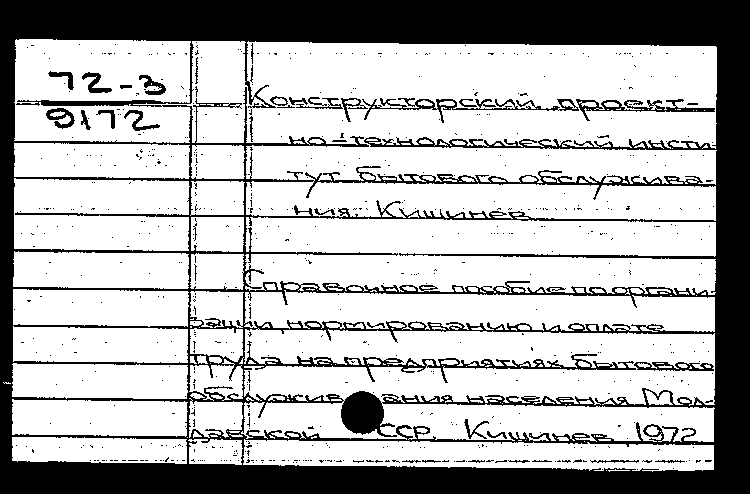 72-3
9172
Конструкторский проект-
но-технологический инсти-
тут бытового обслужива-
ния. Кишинев
Справочное пособие по органи-
зации, нормированию и оплате
труда на предприятиях бытового
обслуживания населения Мол-
давской ССР. Кишинев, 1972